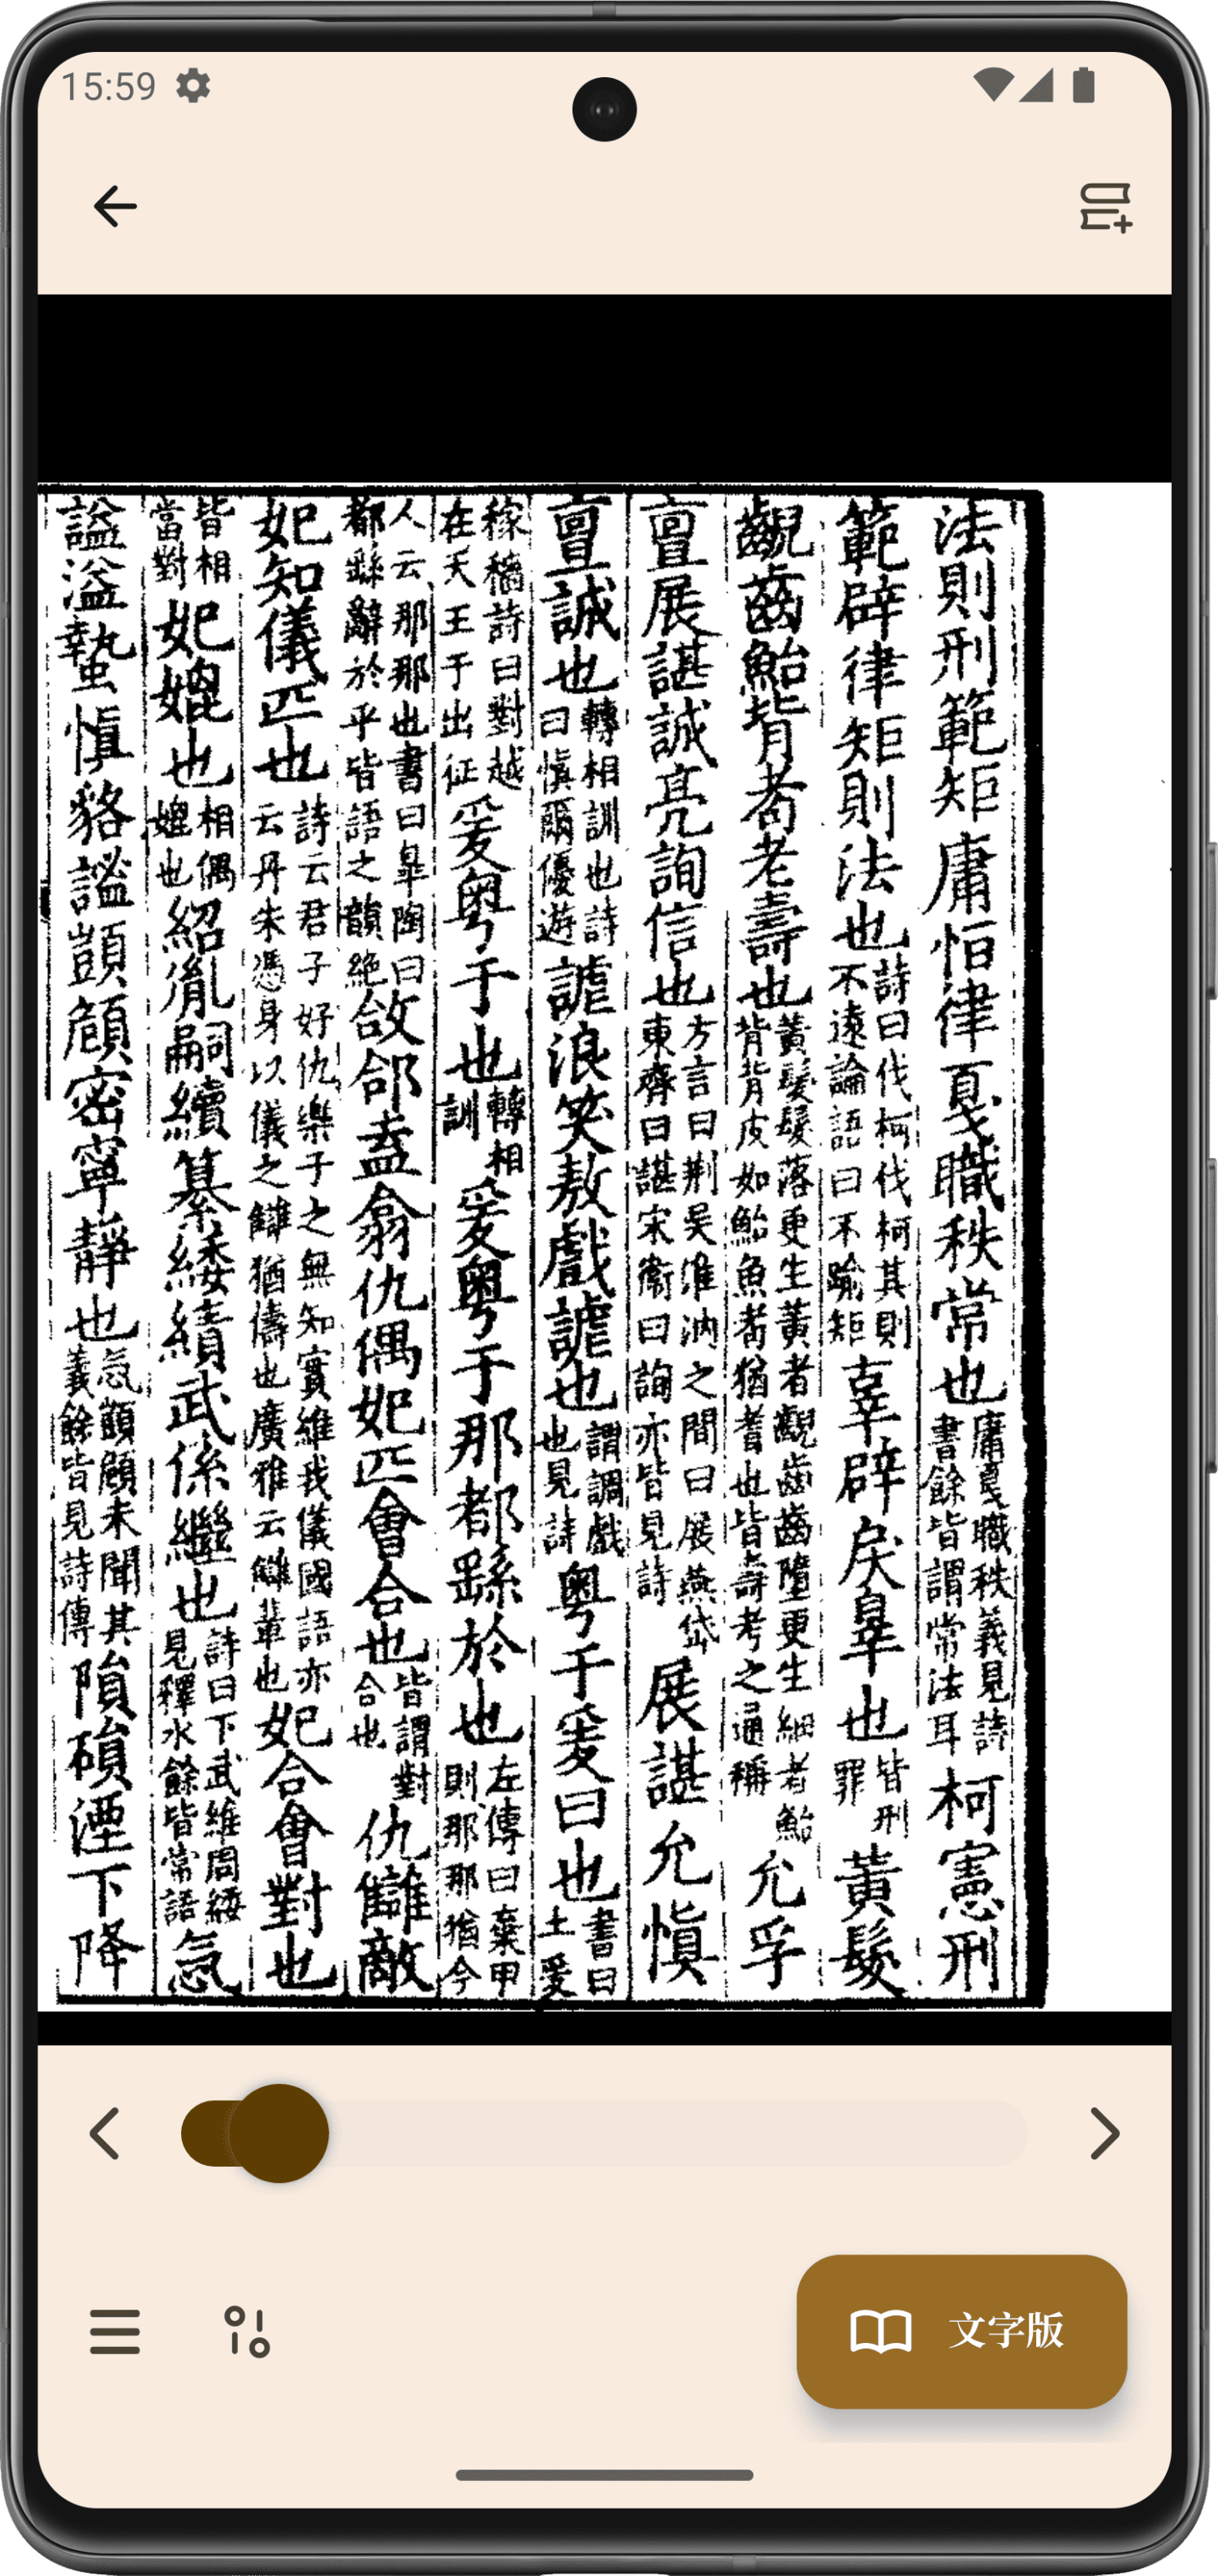 15:59
法則刑範矩庸恒律戛職秩常也庸戛職秩義見詩書餘皆謂常法耳柯憲刑
範辟律矩則法也詩曰伐柯伐柯其則不遠論語曰不踰矩辜辟戾辠也皆刑罪黃髮
齯齒鮐背耇老壽也黃髮髮落更生黃者齯齒齒墮更生細者鮐背背皮如鮐魚耇猶耆也皆壽考之通稱允孚
亶展諶誠亮詢信也方言曰荆吳淮汭之間曰展燕岱東齊曰諶宋衞曰詢亦皆見詩展諶允慎
亶誠也轉相訓也詩曰慎爾優遊謔浪笑敖戲謔也謂調戲也見詩粵于爰曰也書曰土爰
稼穡詩曰對越在天王于出征爰粵于也轉相訓爰粵于那都繇於也左傳曰棄甲則那那猶今
人云那那也書曰皐陶曰都繇辭於乎皆語之韻絶敆郃盍翕仇偶妃匹會合也皆謂對合也仇讎敵
妃知儀匹也詩云君子好仇樂子之無知實維我儀國語亦云丹朱憑身以儀之讎猶儔也廣雅云讎輩也妃合會對也
皆相當對妃媲也相偶媲也紹胤嗣續纂緌績武係繼也詩曰下武維周緌見釋水餘皆常語忥
謚溢蟄慎貉謐顗頠密寧靜也忥顗頠未聞其義餘皆見詩傳隕磒湮下降
文字版